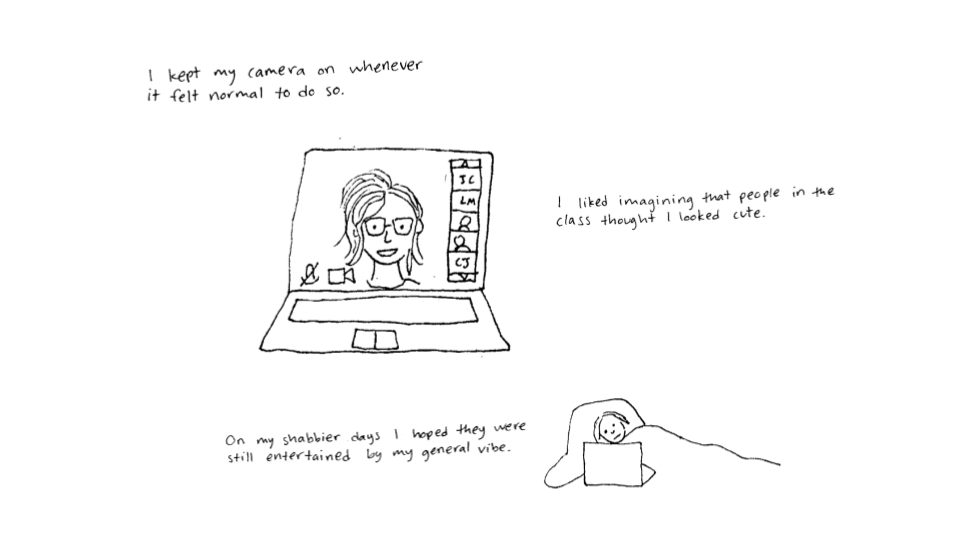 I kept my camera on whenever
it felt normal to do so.
JC
LM
CJ
I liked imagining that people in the
class thought I looked cute.
On my shabbier days I hoped they were
still entertained by my general vibe.